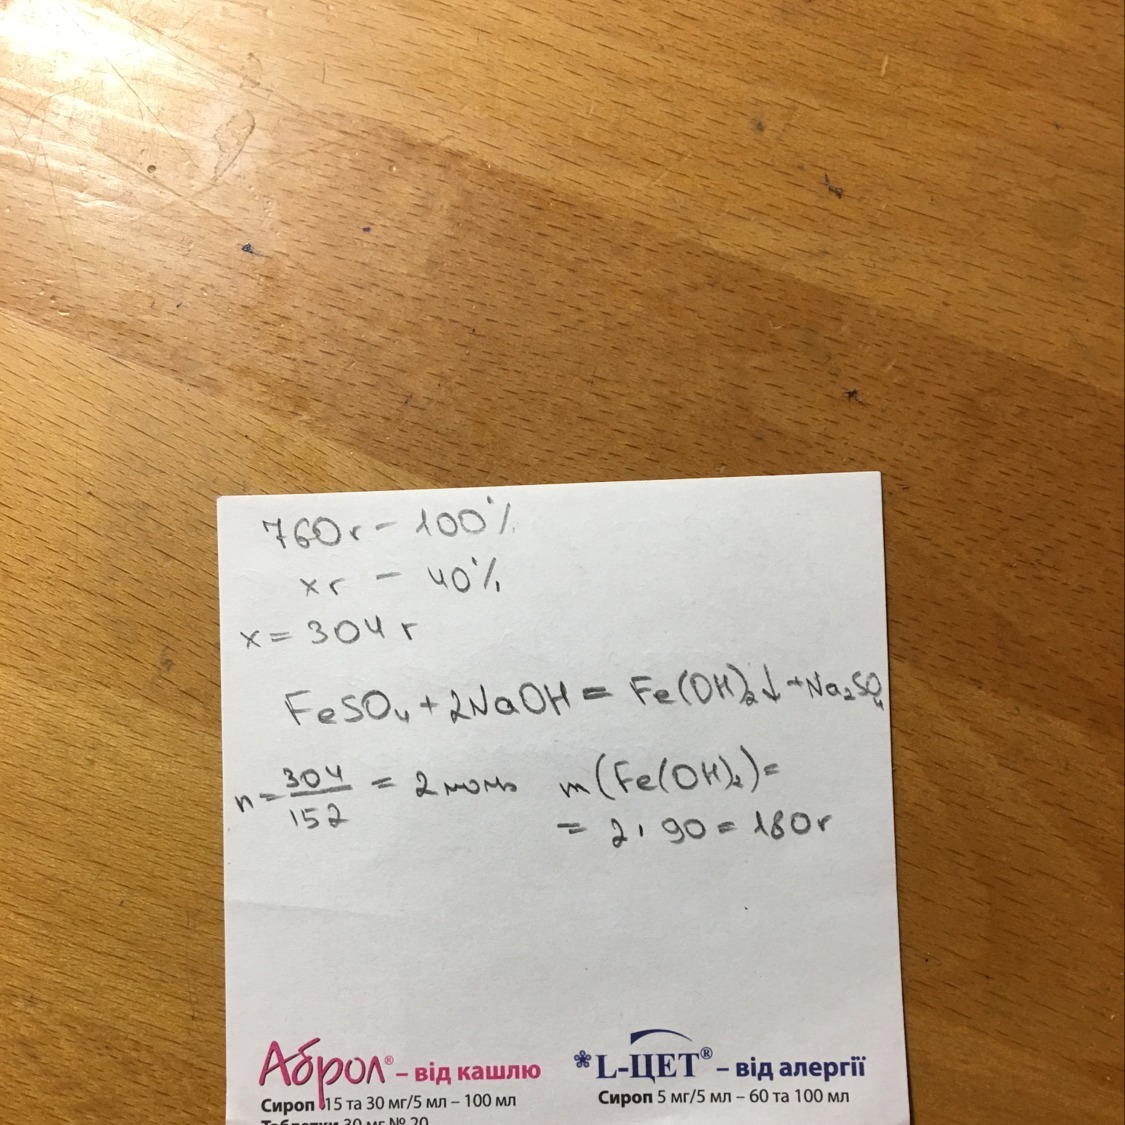 760г - 100%
хг - 40%
х = 304 г
FeSO₄ + 2NaOH = Fe(OH)₂↓ + Na₂SO₄
n = 304/152 = 2 моль m(Fe(OH)₂) =
= 2 · 90 = 180г
Аброл® – від кашлю
Сироп 15 та 30 мг/5 мл – 100 мл
Таблетки 30 мг № 20
L-ЦЕТ® – від алергії
Сироп 5 мг/5 мл – 60 та 100 мл